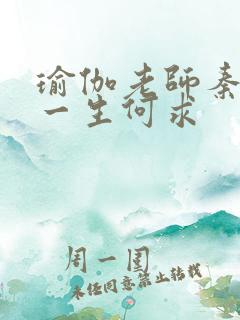 瑜伽老师秦
一生何求
周一围
未经同意禁止转载